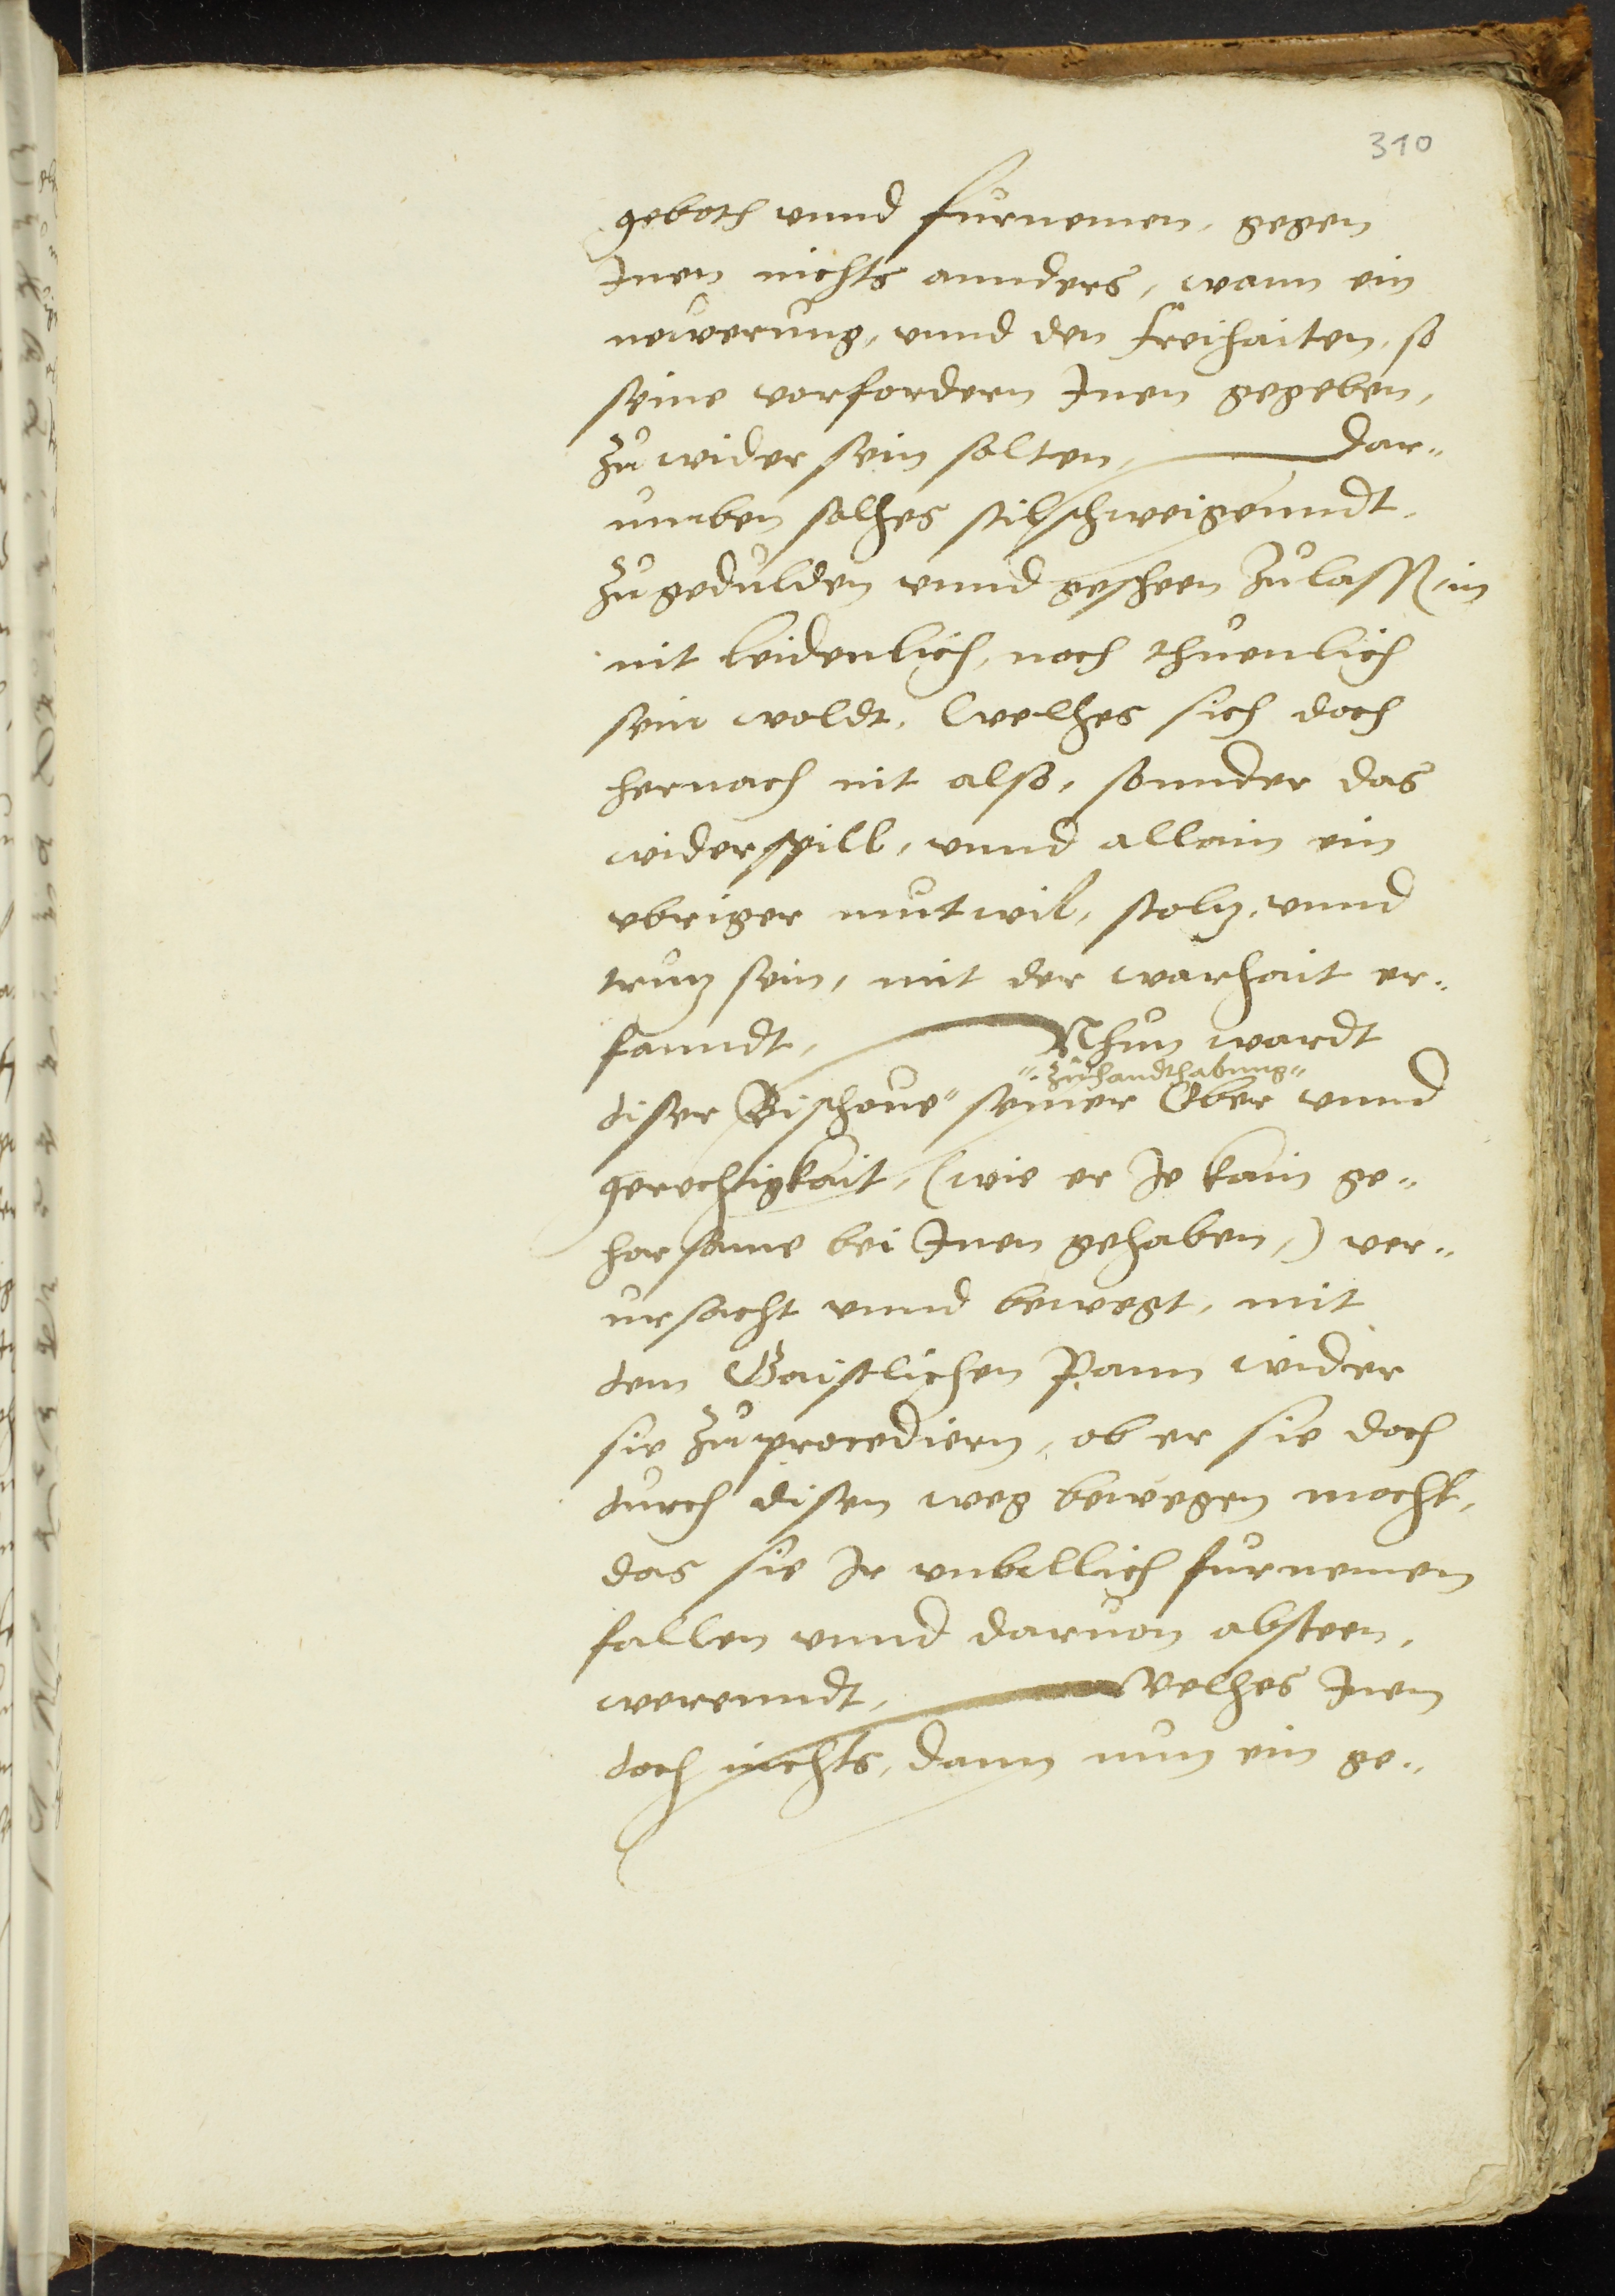 310
geboth vnnd furnemen, gegen
Inen nichts annders, wann ein
newerung, vnnd den freihaiten, so
seine vorfordern Inen gegeben,
zu wider sein solten, Dar„
umben solhes stilschweigenndt,
zugedulden vnnd gescheen zulassen, in
nit leidenlich, noch thuenlich
sein woldt, Welhes sich doch
hernach nit also, sonnder das
widerspill, vnnd allain ein
vbriger mutwil, stolz, vnnd
truz sein, mit der warhait er„
fanndt, Nhun wardt
„zuhandthabung„
diser Bischoue„ seiner Ober vnnd
gerechtigkait, (wie er Je kain ge„
horsame bei Inen gehaben,) ver„
ursacht vnnd bewegt, mit
dem Gaistlichen Pann wider
sie zuprocediern, ob er sie doch
durch disen weg bewegen mocht,
das sie Ir vnbillich furnemen
fallen vnnd daruon absteen,
werenndt, Welhes Inen
doch nichts, dann nun ein ge„